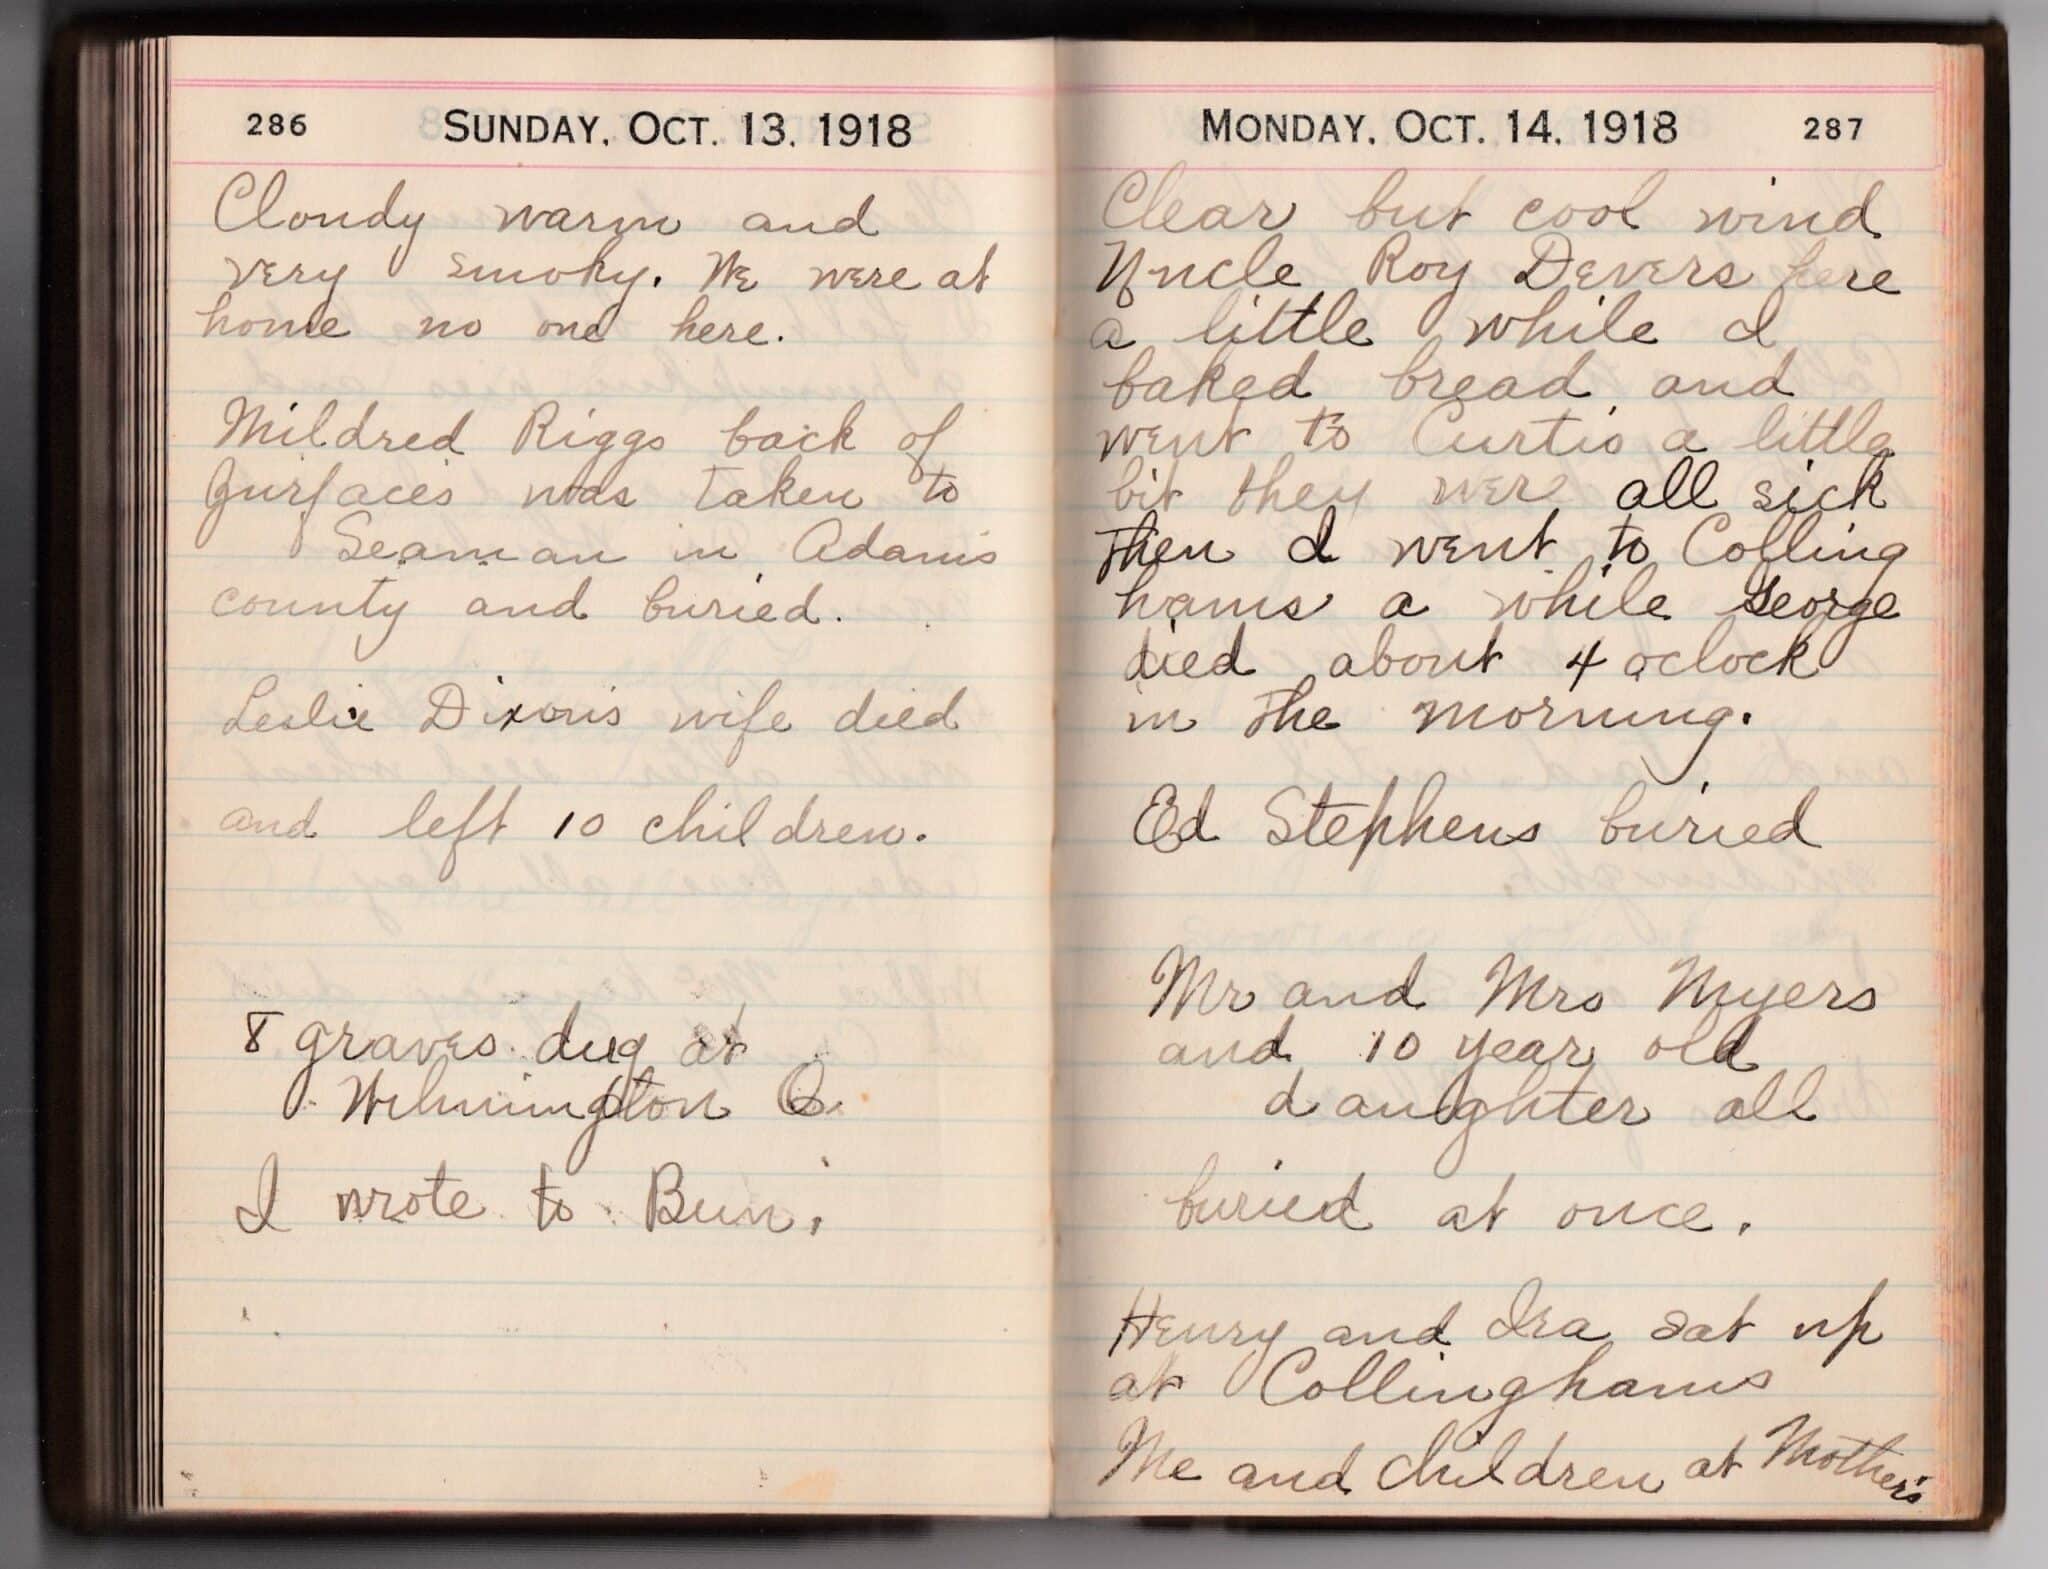 286 SUNDAY, OCT. 13, 1918
Cloudy warm and
very smoky. We were at
home no one here.
Mildred Riggs back of
Gurfaces was taken to
Seaman in Adams
county and buried.
Leslie Dixons wife died
and left 10 children.
8 graves dug at
Wilmington O.
I wrote to Bun.
MONDAY, OCT. 14, 1918 287
Clear but cool wind
Uncle Roy Devers here
a little while I
baked bread and
went to Curtis a little
bit they wer all sick
then I went to Colling
hams a while George
died about 4 oclock
in the morning.
Ed Stephens buried
Mr and Mrs Myers
and 10 year old
daughter all
buried at once.
Henry and Ira sat up
at Collinghams
Me and children at Mother's